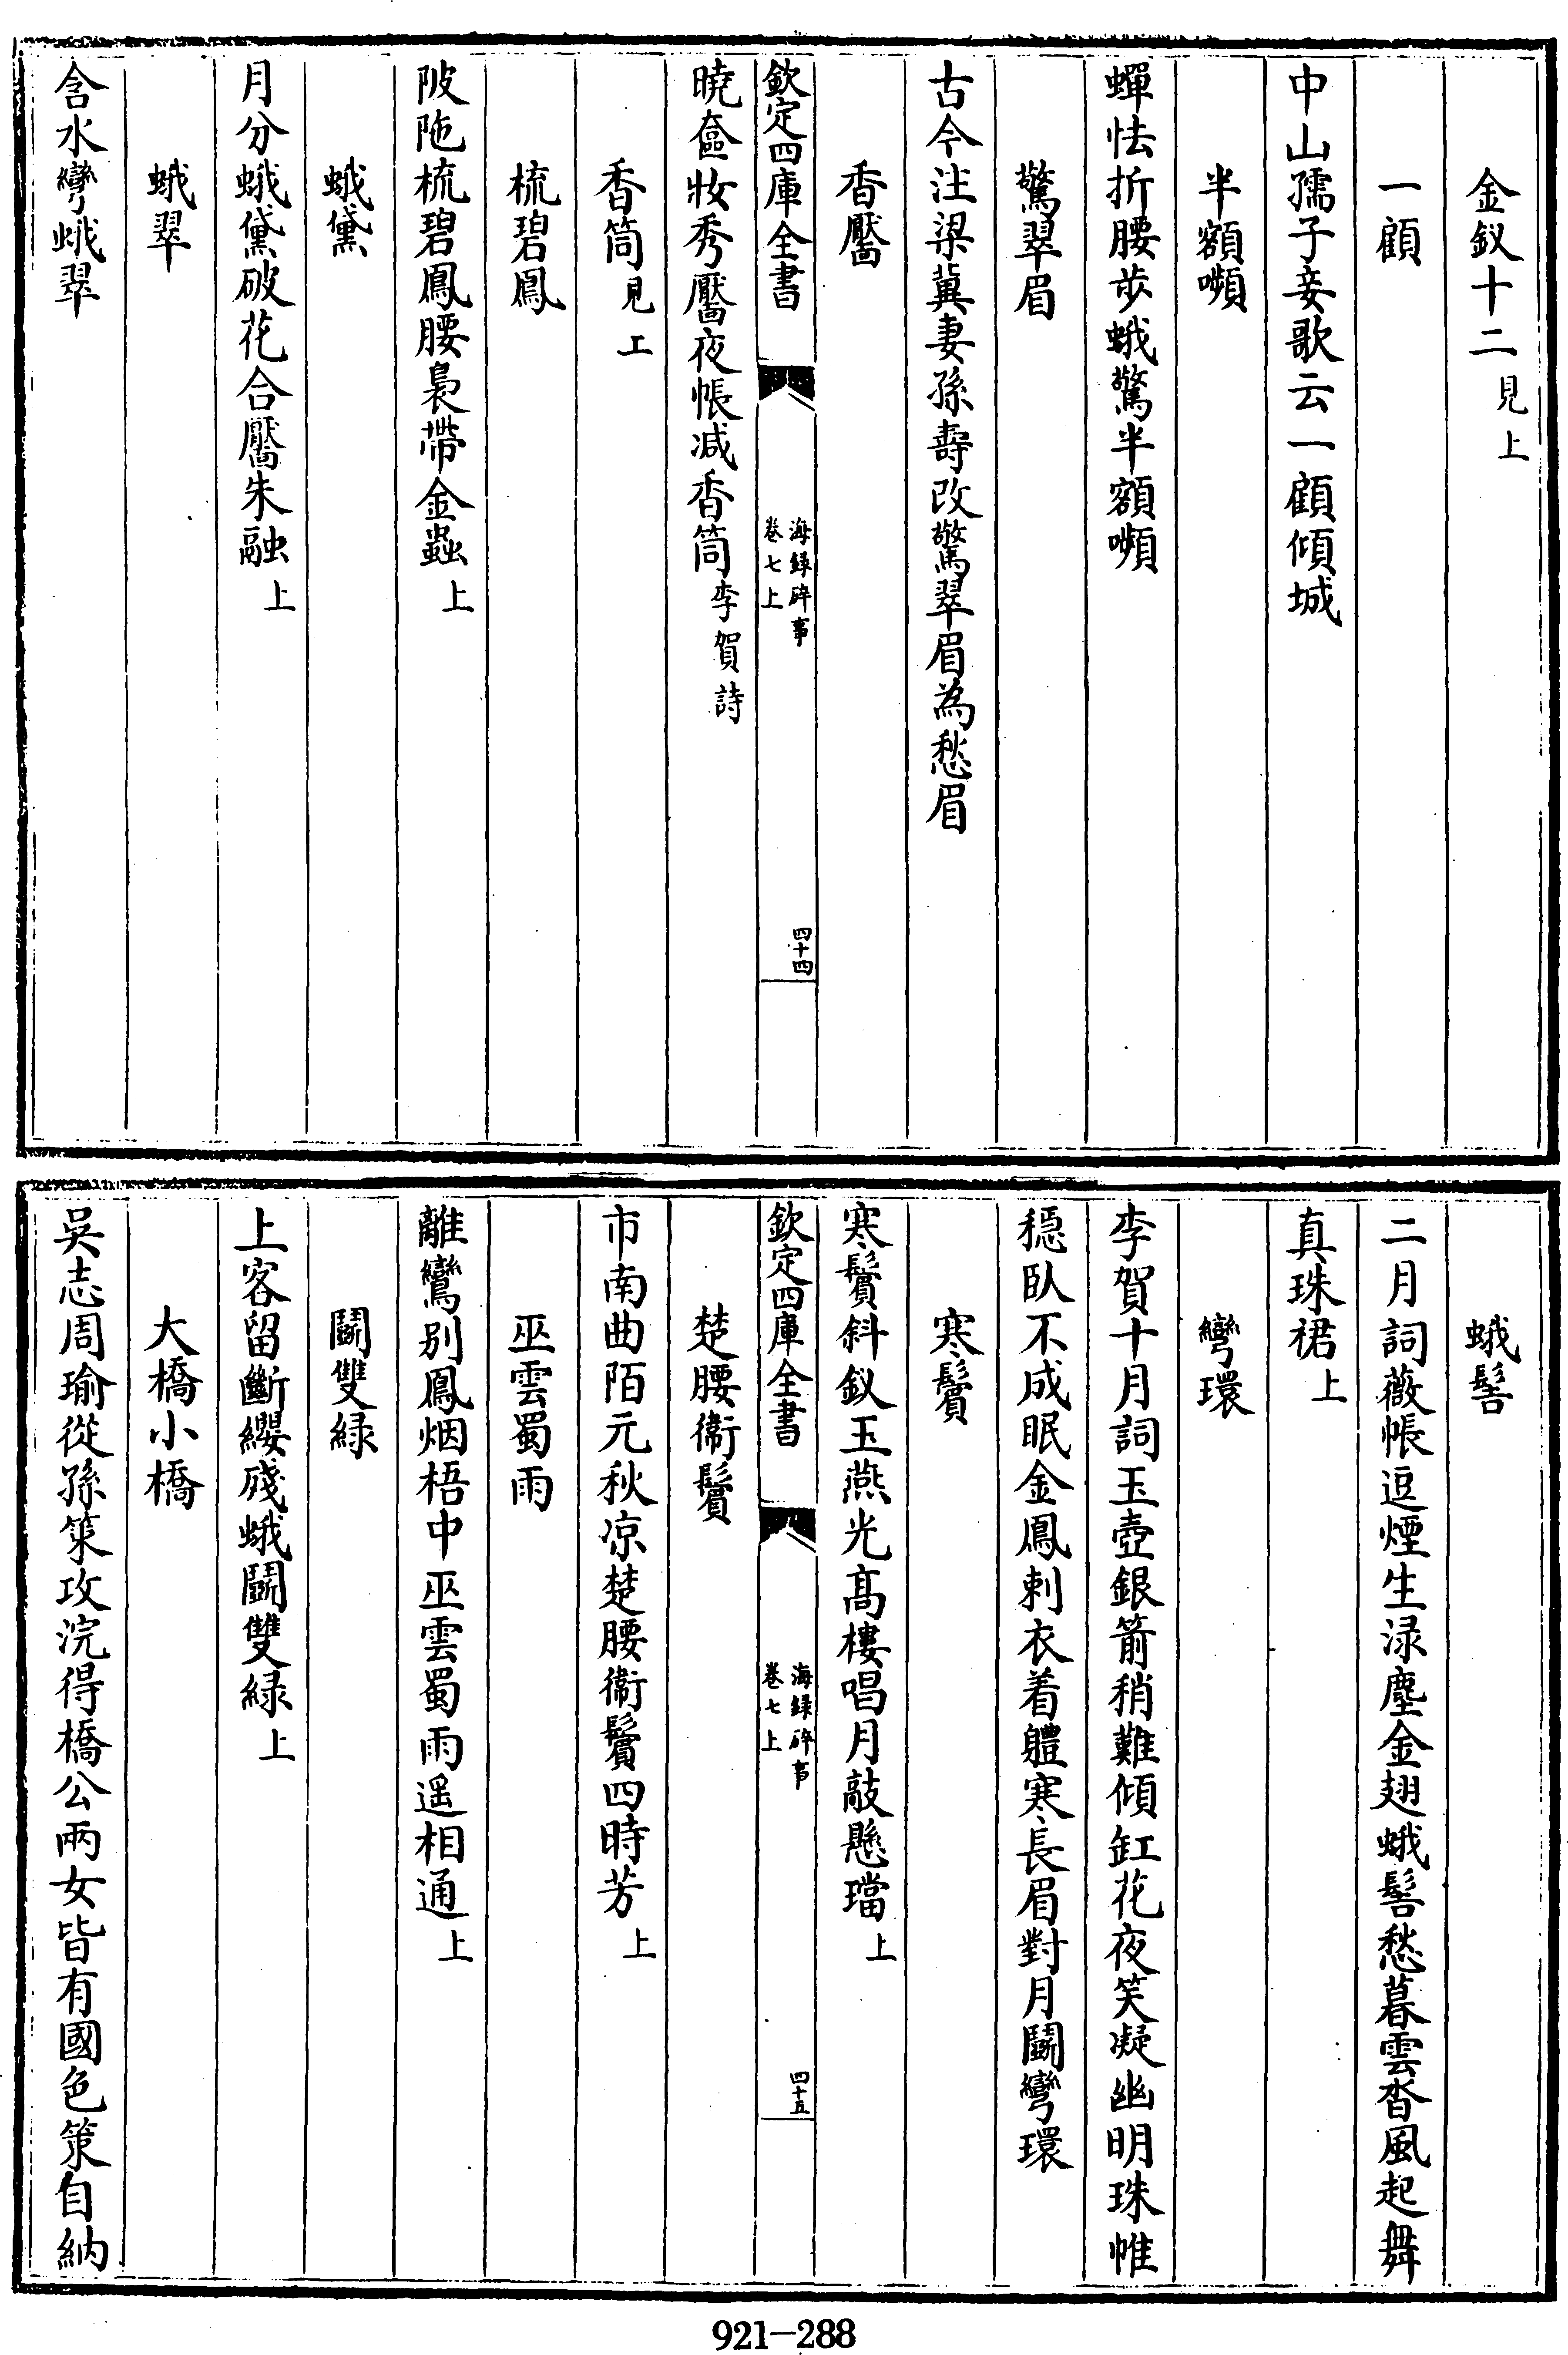 金釵十二見上
一顧
中山孺子妾歌云一顧傾城
半額嚬
蟬怯折腰步蛾驚半額嚬
驚翠眉
古今注梁冀妻孫壽改驚翠眉為愁眉
香靨
欽定四庫全書
海録碎事
卷七上
四十四
曉奩妝秀靨夜帳减香筒李賀詩
香筒見上
梳碧鳳
陂陁梳碧鳳腰裊帶金蟲上
蛾黛
月分蛾黛破花合靨朱融上
蛾翠
含水彎蛾翠
蛾髻
二月詞薇帳逗煙生渌塵金翅蛾髻愁暮雲沓風起舞
真珠裙上
彎環
李賀十月詞玉壺銀箭稍難傾缸花夜笑凝幽明珠帷
穏臥不成眠金鳳刺衣着軆寒長眉對月鬭彎環
寒鬢
寒鬢斜釵玉燕光高樓唱月敲懸璫上
欽定四庫全書
海録碎事
卷七上
四十五
楚腰衞鬢
市南曲陌元秋凉楚腰衞鬢四時芳上
巫雲蜀雨
離鸞别鳳烟梧中巫雲蜀雨遥相通上
鬭雙緑
上客留斷纓殘蛾鬭雙緑上
大橋小橋
吳志周瑜從孫策攻浣得橋公兩女皆有國色策自納
921-288